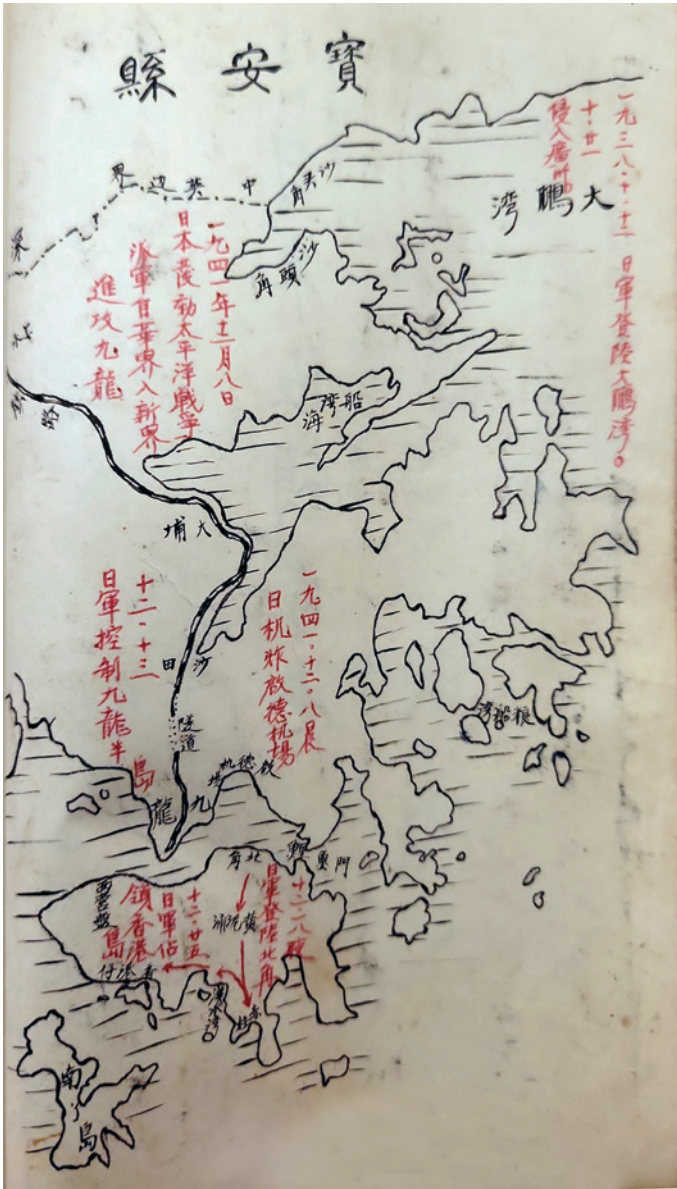 寶安縣
一九三八·十·十二 日軍登陸大鵬灣。
十·廿一
侵入廣州
大鵬湾
沙头角
中英边界
沙頭角
深
路
一九四一年十二月八日
日本發動太平洋戰爭
派軍自華界入新界
進攻九龍
船湾海
大埔
一九四一·十二·八晨
日机炸啟德机場
十二·十三
日軍控制九龍半島
沙田
隧道
粮船湾
啟德机場
九龍
鲤魚門
北角
十二·十八夜
日軍登陸北角
黄泥涌
十二·廿五
日軍佔
領香港
島
西营盘
香港仔
淺水湾
赤柱
南丫島